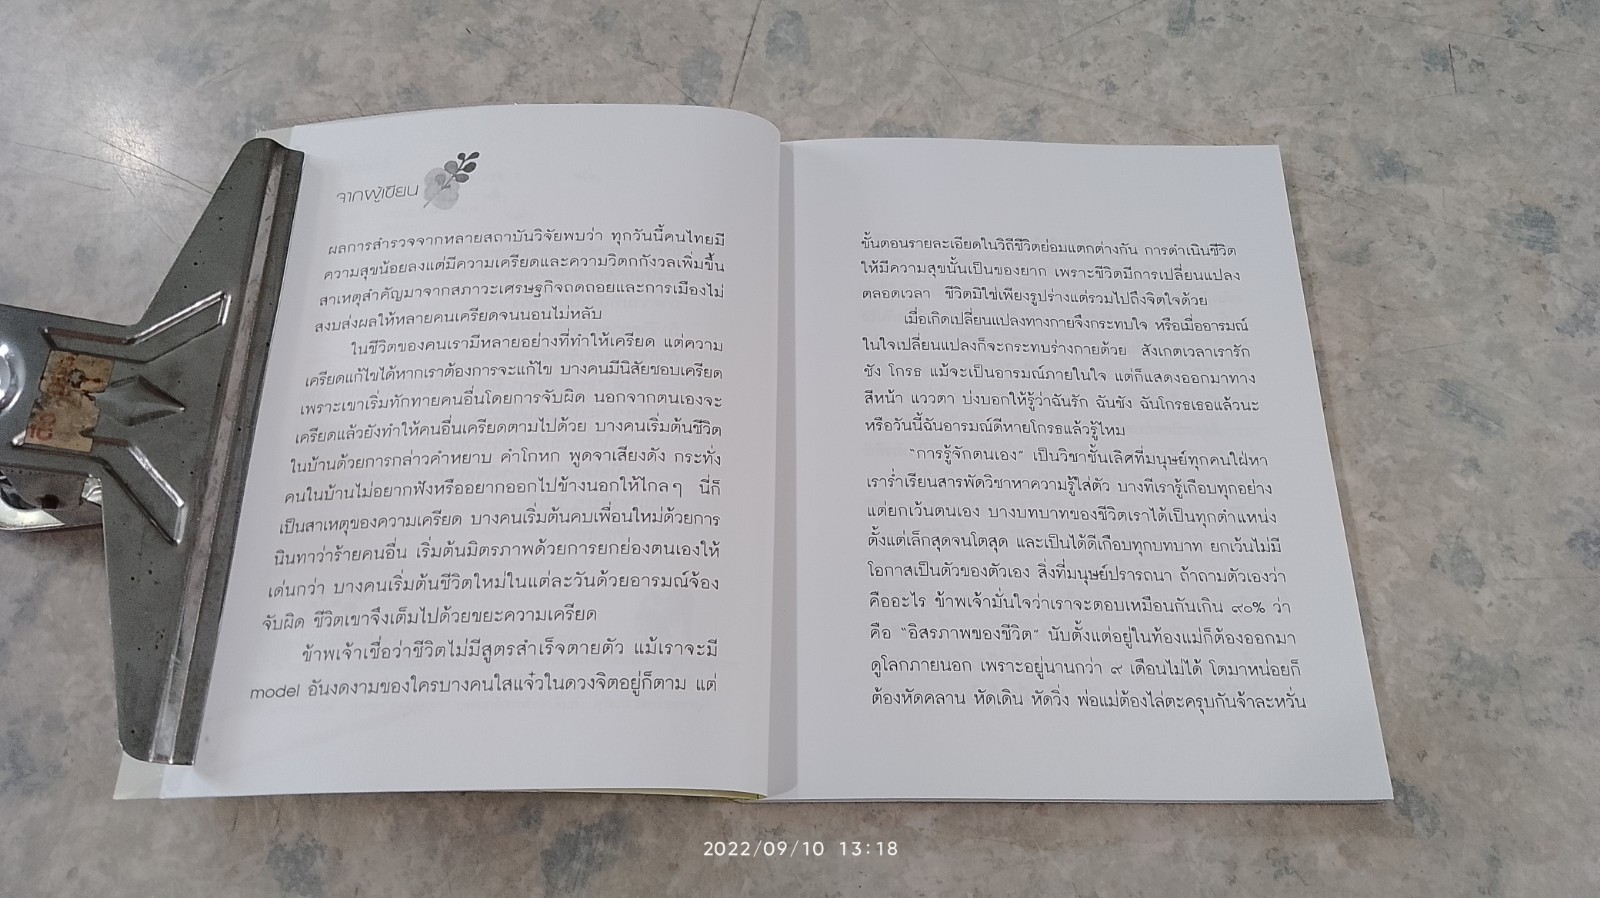 จากผู้เขียน
ผลการสำรวจจากหลายสถาบันวิจัยพบว่า ทุกวันนี้คนไทยมี
ความสุขน้อยลงแต่มีความเครียดและความวิตกกังวลเพิ่มขึ้น
สาเหตุสำคัญมาจากสภาวะเศรษฐกิจถดถอยและการเมืองไม่
สงบส่งผลให้หลายคนเครียดจนนอนไม่หลับ
ในชีวิตของคนเรามีหลายอย่างที่ทำให้เครียด แต่ความ
เครียดแก้ไขได้หากเราต้องการจะแก้ไข บางคนมีนิสัยชอบเครียด
เพราะเขาเริ่มทักทายคนอื่นโดยการจับผิด นอกจากตนเองจะ
เครียดแล้วยังทำให้คนอื่นเครียดตามไปด้วย บางคนเริ่มต้นชีวิต
ในบ้านด้วยการกล่าวคำหยาบ คำโกหก พูดจาเสียงดัง กระทั่ง
คนในบ้านไม่อยากฟังหรืออยากออกไปข้างนอกให้ไกลๆ นี่ก็
เป็นสาเหตุของความเครียด บางคนเริ่มต้นคบเพื่อนใหม่ด้วยการ
นินทาว่าร้ายคนอื่น เริ่มต้นมิตรภาพด้วยการยกย่องตนเองให้
เด่นกว่า บางคนเริ่มต้นชีวิตใหม่ในแต่ละวันด้วยอารมณ์จ้อง
จับผิด ชีวิตเขาจึงเต็มไปด้วยขยะความเครียด
ข้าพเจ้าเชื่อว่าชีวิตไม่มีสูตรสำเร็จตายตัว แม้เราจะมี
model อันงดงามของใครบางคนใสแจ๋วในดวงจิตอยู่ก็ตาม แต่
ขั้นตอนรายละเอียดในวิถีชีวิตย่อมแตกต่างกัน การดำเนินชีวิต
ให้มีความสุขนั้นเป็นของยาก เพราะชีวิตมีการเปลี่ยนแปลง
ตลอดเวลา ชีวิตมิใช่เพียงรูปร่างแต่รวมไปถึงจิตใจด้วย
เมื่อเกิดเปลี่ยนแปลงทางกายจึงกระทบใจ หรือเมื่ออารมณ์
ในใจเปลี่ยนแปลงก็จะกระทบร่างกายด้วย สังเกตเวลาเรารัก
ชัง โกรธ แม้จะเป็นอารมณ์ภายในใจ แต่ก็แสดงออกมาทาง
สีหน้า แววตา บ่งบอกให้รู้ว่าฉันรัก ฉันชัง ฉันโกรธเธอแล้วนะ
หรือวันนี้ฉันอารมณ์ดีหายโกรธแล้วรู้ไหม
"การรู้จักตนเอง" เป็นวิชาชั้นเลิศที่มนุษย์ทุกคนใฝ่หา
เราร่ำเรียนสารพัดวิชาหาความรู้ใส่ตัว บางทีเรารู้เกือบทุกอย่าง
แต่ยกเว้นตนเอง บางบทบาทของชีวิตเราได้เป็นทุกตำแหน่ง
ตั้งแต่เล็กสุดจนโตสุด และเป็นได้ดีเกือบทุกบทบาท ยกเว้นไม่มี
โอกาสเป็นตัวของตัวเอง สิ่งที่มนุษย์ปรารถนา ถ้าถามตัวเองว่า
คืออะไร ข้าพเจ้ามั่นใจว่าเราจะตอบเหมือนกันเกิน ๙๐% ว่า
คือ "อิสรภาพของชีวิต" นับตั้งแต่อยู่ในท้องแม่ก็ต้องออกมา
ดูโลกภายนอก เพราะอยู่นานกว่า ๙ เดือนไม่ได้ โตมาหน่อยก็
ต้องหัดคลาน หัดเดิน หัดวิ่ง พ่อแม่ต้องไล่ตะครุบกันจ้าละหวั่น
2022/09/10 13:18